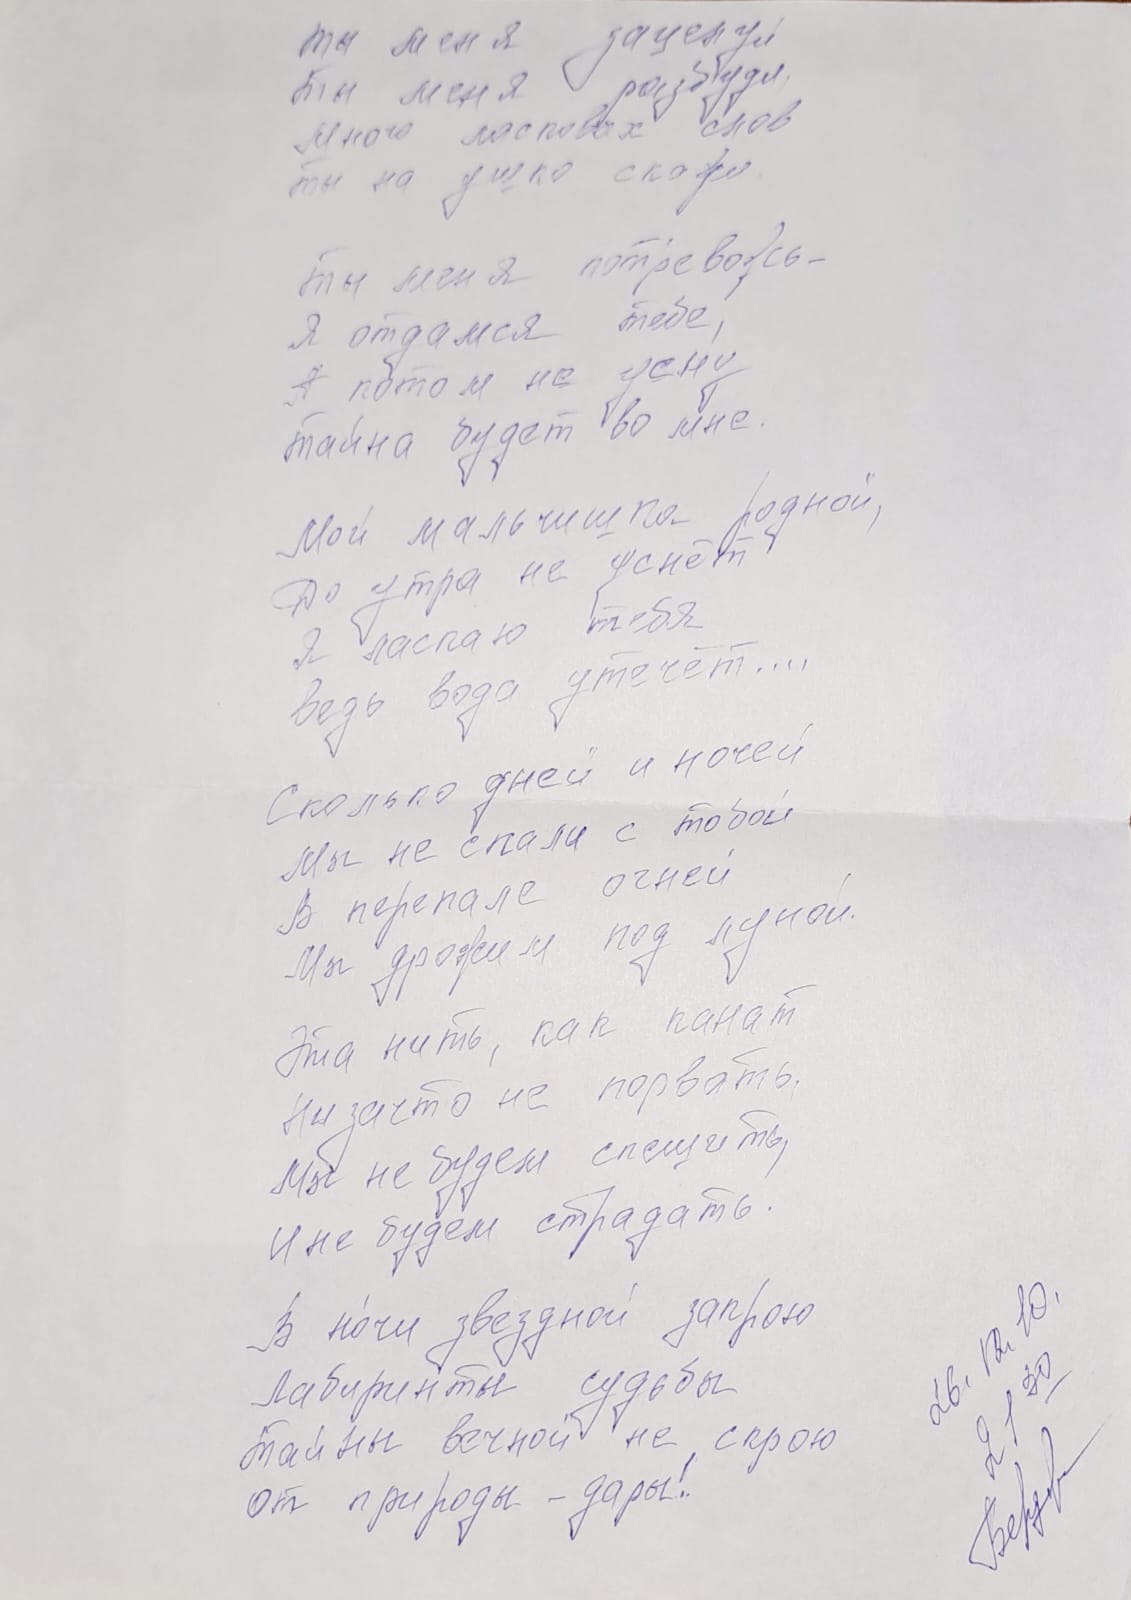 Ты меня зацелуй
Ты меня разбуди,
Много ласковых слов
Ты на ушко скажи.
Ты меня потревожь –
Я отдамся тебе,
А потом не усну
Тайна будет во мне.
Мой мальчишка родной,
До утра не уснёт
Я ласкаю тебя
ведь вода утечёт....
Сколько дней и ночей
Мы не спали с тобой
В перепале очней
Мы дрожим под луной.
Эта нить, как канат
Низачто не порвать,
Мы не будем спешить,
И не будем страдать.
В ночи звездной запрою
Лабиринты судьбы
Тайны вечной не скрою
От природы – дары!
26. 12. 10.
21 30